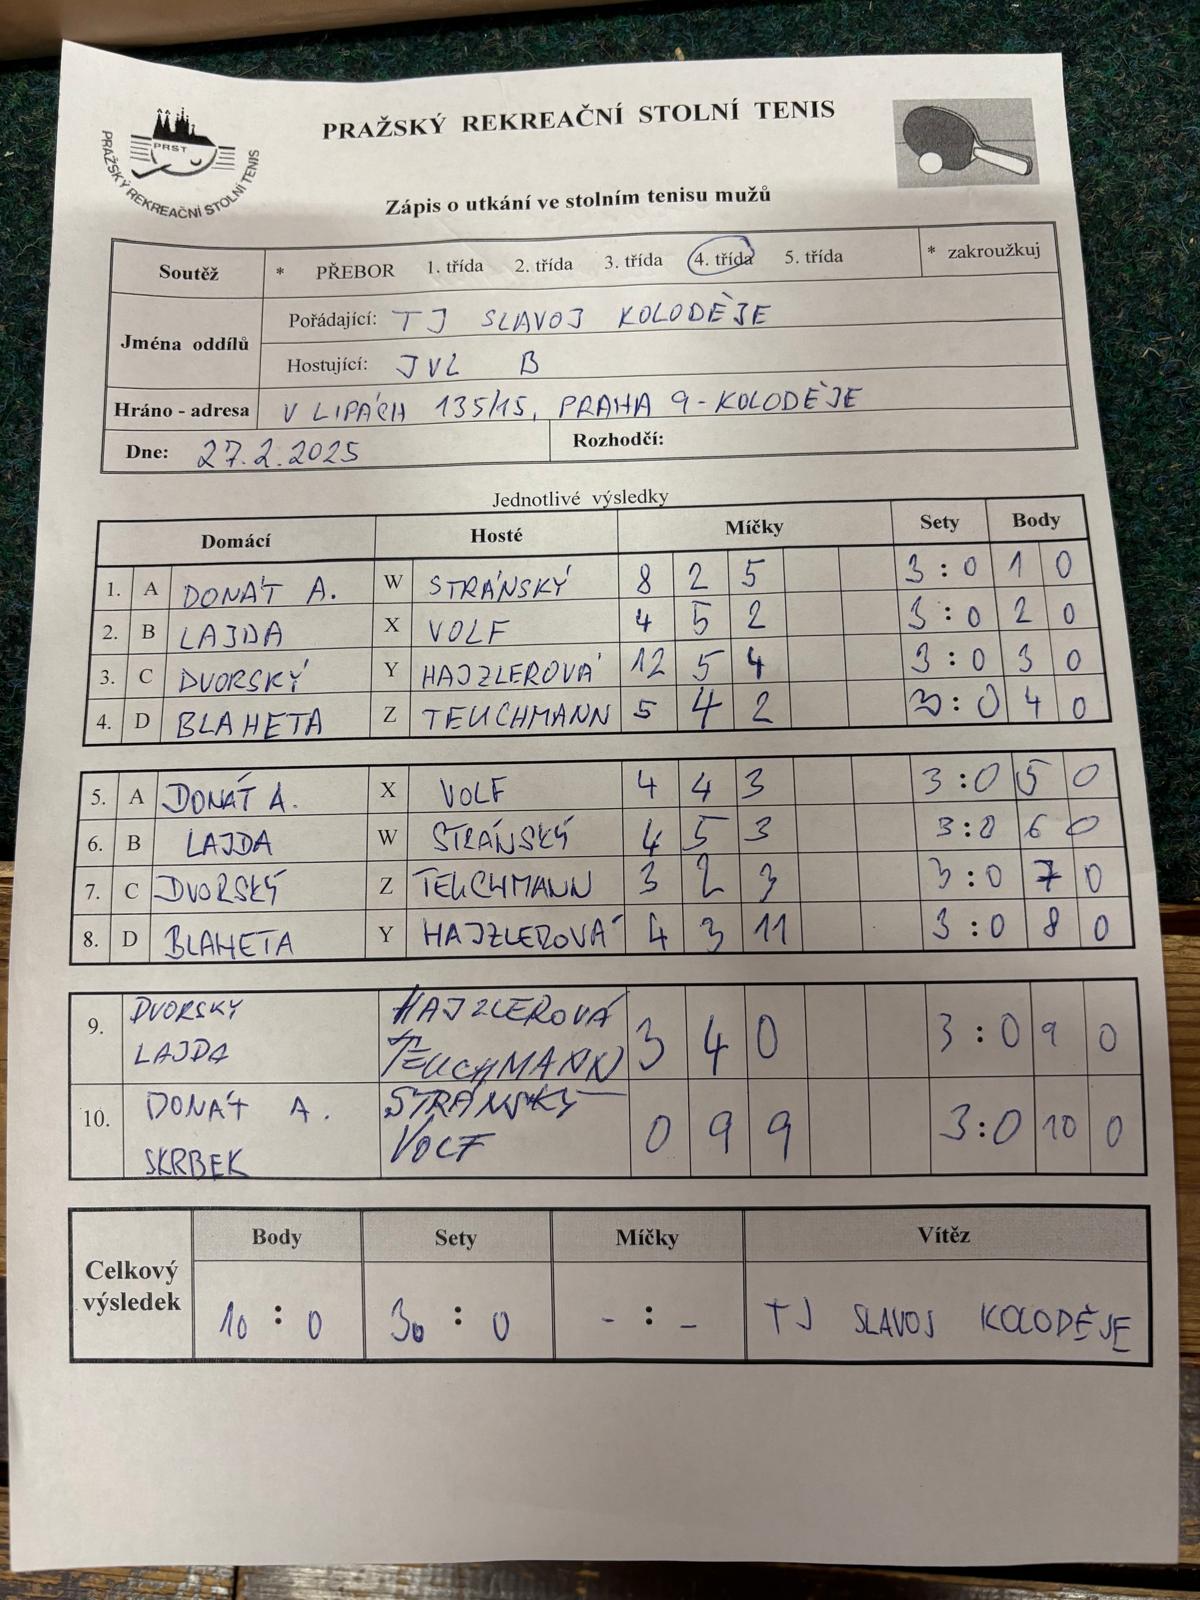 PRAŽSKÝ REKREAČNÍ STOLNÍ TENIS
PRST
PRAŽSKÝ REKREAČNÍ STOLNÍ TENIS
Zápis o utkání ve stolním tenisu mužů
Soutěž * PŘEBOR 1. třída 2. třída 3. třída 4. třída 5. třída * zakroužkuj
Jména oddílů
Pořádající: TJ SLAVOJ KOLODĚJE
Hostující: JVL B
Hráno - adresa V LIPÁCH 135/15, PRAHA 9 - KOLODĚJE
Dne: 27.2.2025 Rozhodčí:
Jednotlivé výsledky
Domácí Hosté Míčky Sety Body
1. A DONÁT A. W STRÁNSKÝ 8 2 5 3 : 0 1 0
2. B LAJDA X VOLF 4 5 2 3 : 0 2 0
3. C DVORSKÝ Y HAJZLEROVÁ 12 5 4 3 : 0 3 0
4. D BLAHETA Z TEUCHMANN 5 4 2 3 : 0 4 0
5. A DONÁT A. X VOLF 4 4 3 3 : 0 5 0
6. B LAJDA W STRÁNSKÝ 4 5 3 3 : 0 6 0
7. C DVORSKÝ Z TEUCHMANN 3 2 3 3 : 0 7 0
8. D BLAHETA Y HAJZLEROVÁ 4 3 11 3 : 0 8 0
9. DVORSKÝ HAJZLEROVÁ 3 4 0 3 : 0 9 0
LAJDA TEUCHMANN
10. DONÁT A. STRÁNSKÝ 0 9 9 3 : 0 10 0
SKRBEK VOLF
Celkový výsledek
Body Sety Míčky Vítěz
10 : 0 30 : 0 - : - TJ SLAVOJ KOLODĚJE